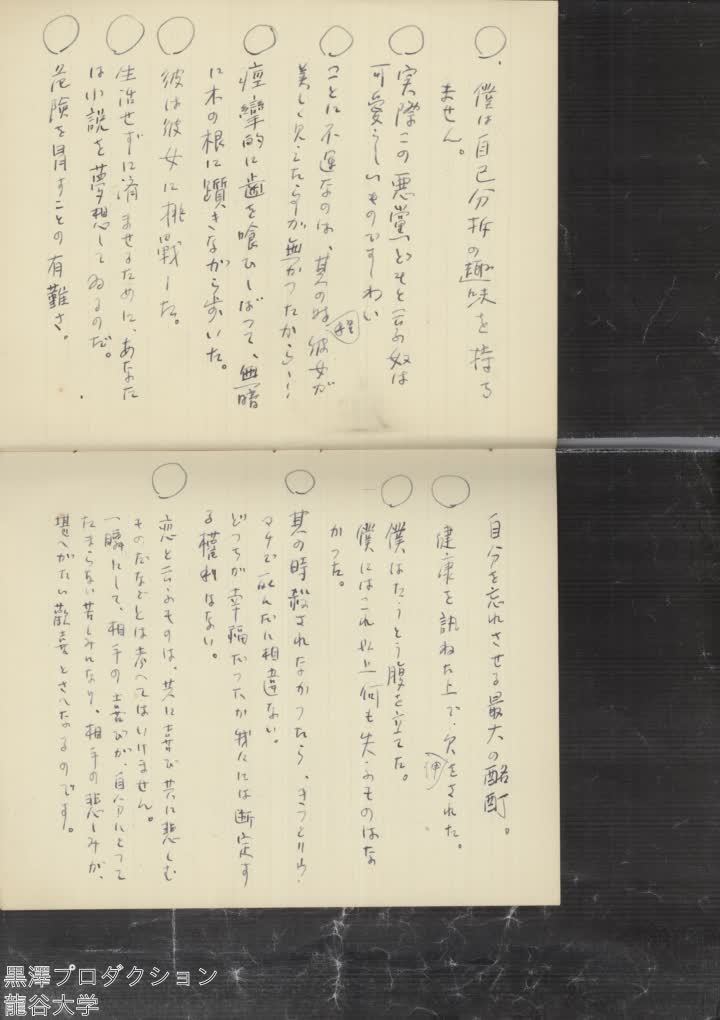 一、僕は自己分析の趣味を持る
ません。
実際この悪党どもと云ふ奴は
可愛らしいものですわい
ことに不運なのは、其の時彼女が
程
美しく欠たらずが無かつたから!
痙攣的に歯を喰ひしばつて、無暗
に木の根に躓きながら歩いた。
彼は彼女に挑戦した。
生活せずに済ませるために、あなた
は小説を夢想してゐるのだ。
危険を冒すことの有難さ。
自分を忘れさせる最大の酩酊。
健康を訊ねた上で、欠をされた。
伸
僕はたうとう腹を立てた。
僕にはこれ以上何も失ふものはな
かつた。
其の時殺されなかつたら、きつと
で死んだに相違ない。
どつちが幸福だつたか我々には断定す
る権利はない。
恋と云ふものは、共に喜び共に悲しむ
ものだなどとは考へてはいけません。
一瞬にして、相手の喜びが、自分にとつて
たまらない苦しみになり、相手の悲しみが、
堪へがたい歓喜とさへなるのです。
黒澤プロダクション
龍谷大学